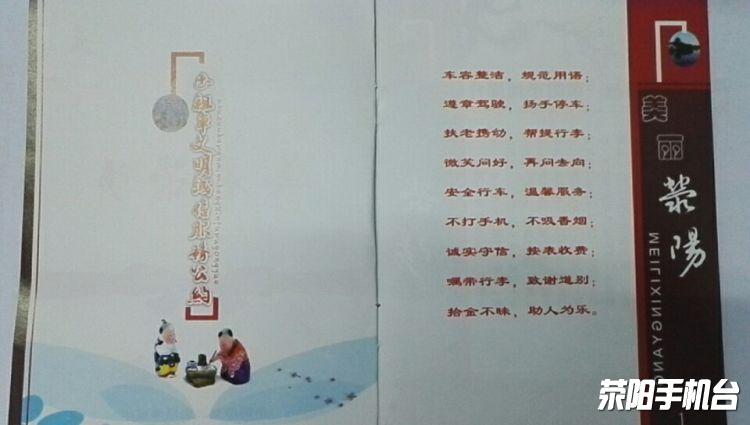 出租车文明诚信服务公约
车容整洁，规范用语；
遵章驾驶，扬手停车；
扶老携幼，帮提行李；
微笑问好，再问去向；
安全行车，温馨服务；
不打手机，不吸香烟；
诚实守信，按表收费；
嘱带行李，致谢道别；
拾金不昧，助人为乐。
美丽荥陽
MEILIXINGYANG
1
荥阳手机台